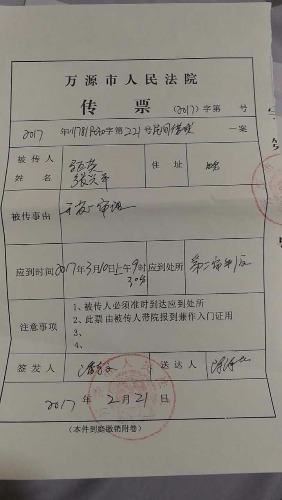 万源市人民法院
传 票 (2017)字第 号
2017 年川1781民初字第221号民间借贷 一案
被传人
姓 名
住 址
被传事由
开庭审理
应到时间 2017年3月10日上午9时 应到处所 第二审判庭
30分
注意事项
1、被传人必须准时到达应到处所
2、此票由被传人带院报到兼作入门证用
3、
4、
签发人 送达人
2017 年 2 月 21 日
(本件到庭缴销附卷)